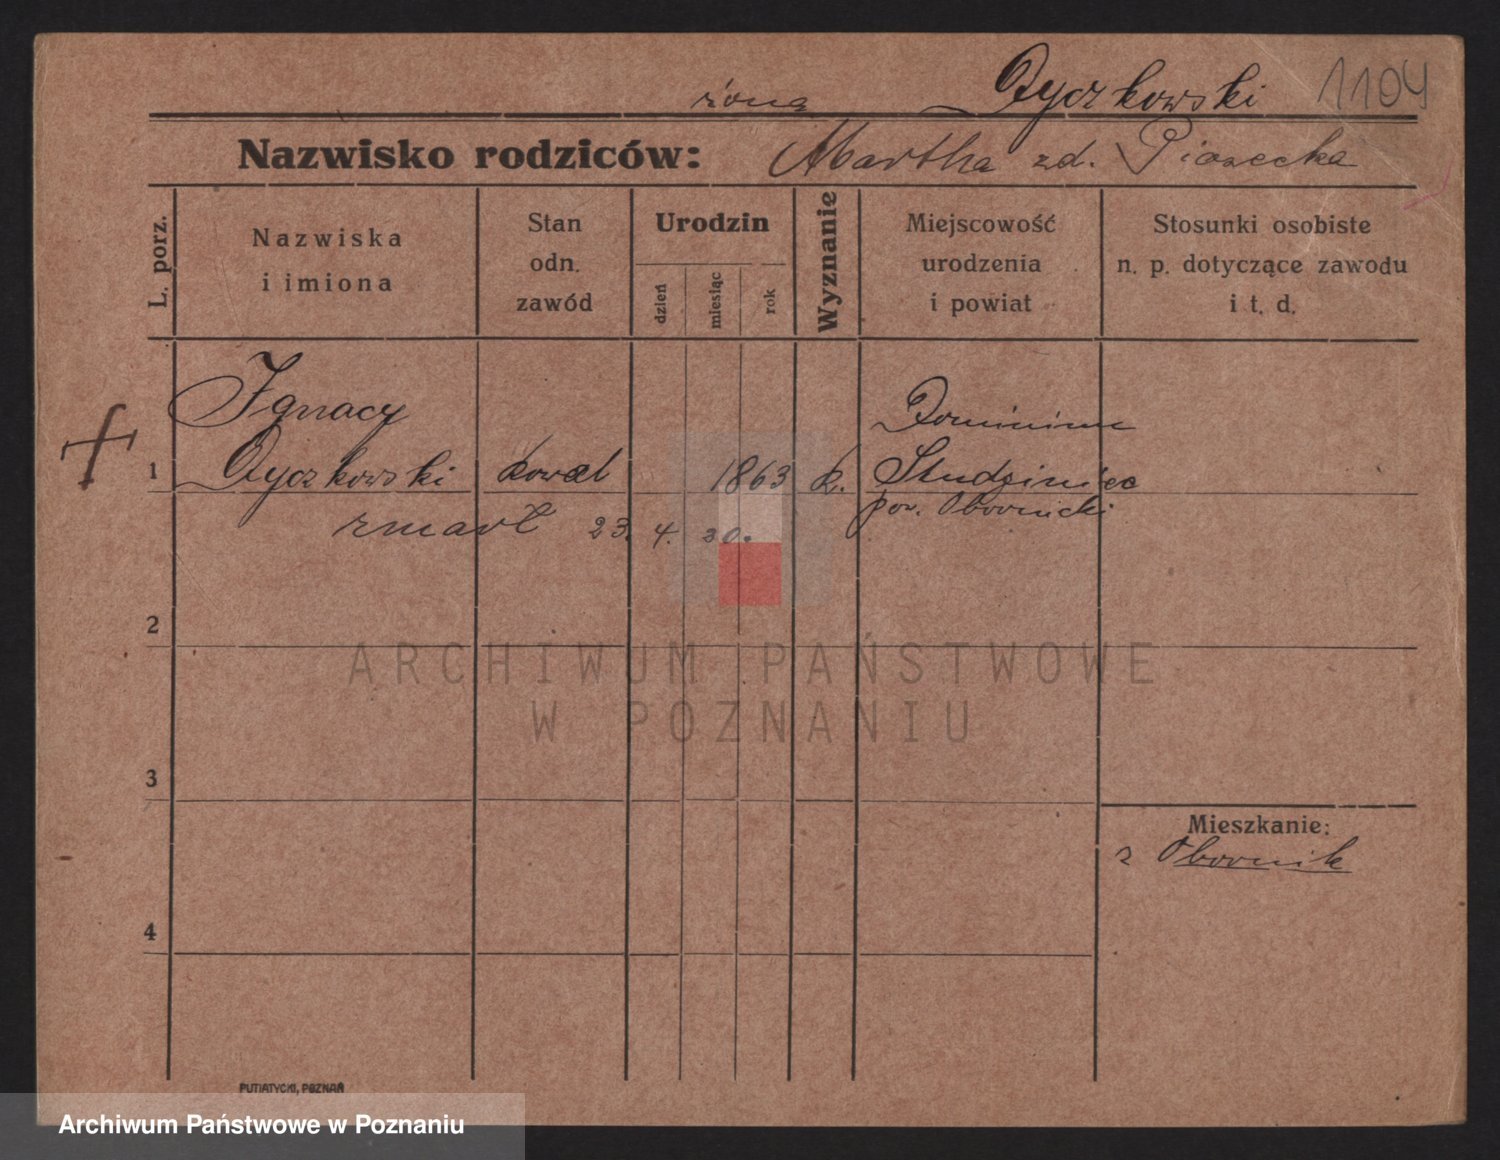 żona Dyczkowski 1104
Nazwisko rodziców: Martha zd. Piasecka
L. porz.
Nazwiska
i imiona
Stan
odn.
zawód
Urodzin
dzień
miesiąc
rok
Wyznanie
Miejscowość
urodzenia
i powiat
Stosunki osobiste
n. p. dotyczące zawodu
i t. d.
Ignacy Dominium
1 Dyczkowski kowal 1863 k. Studziniec
pow. Obornicki
zmarł 23. 4. 30.
2
ARCHIWUM PAŃSTWOWE
W POZNANIU
3
Mieszkanie:
z Obornik
4
PUTIATYCKI, POZNAŃ
Archiwum Państwowe w Poznaniu